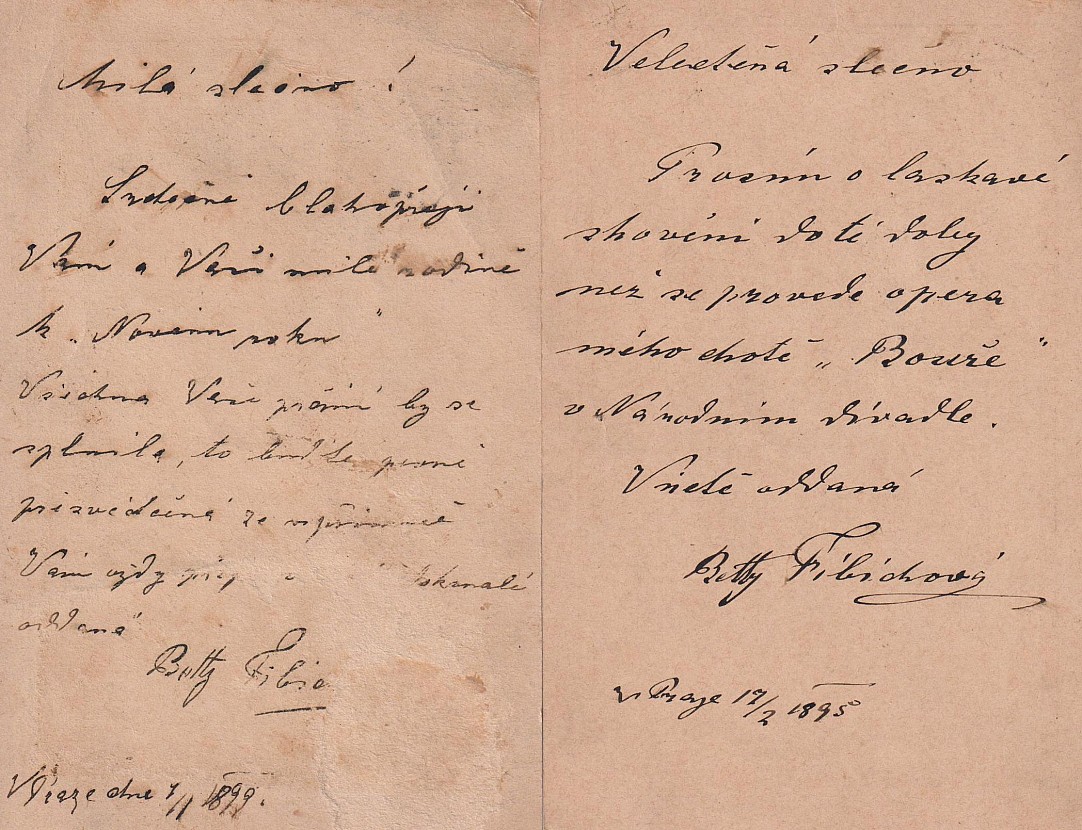 Milá slečno!
Srdečně blahopřeji
Vám a Vaší milé rodině
k „Novém roku“
Všechna Vaše přání by se
splnila, to buďte pevně
přesvědčená že upřímně
Vám vždy
oddaná
Betty Fibic
V Praze dne 1/1 1899.
Veleděná slečno
Prosím o laskavé
shovění do té doby
než se provede opera
mého chotě „Bouře“
v Národním divadle.
V úctě oddaná
Betty Fibichová
v Praze 17/2 1895